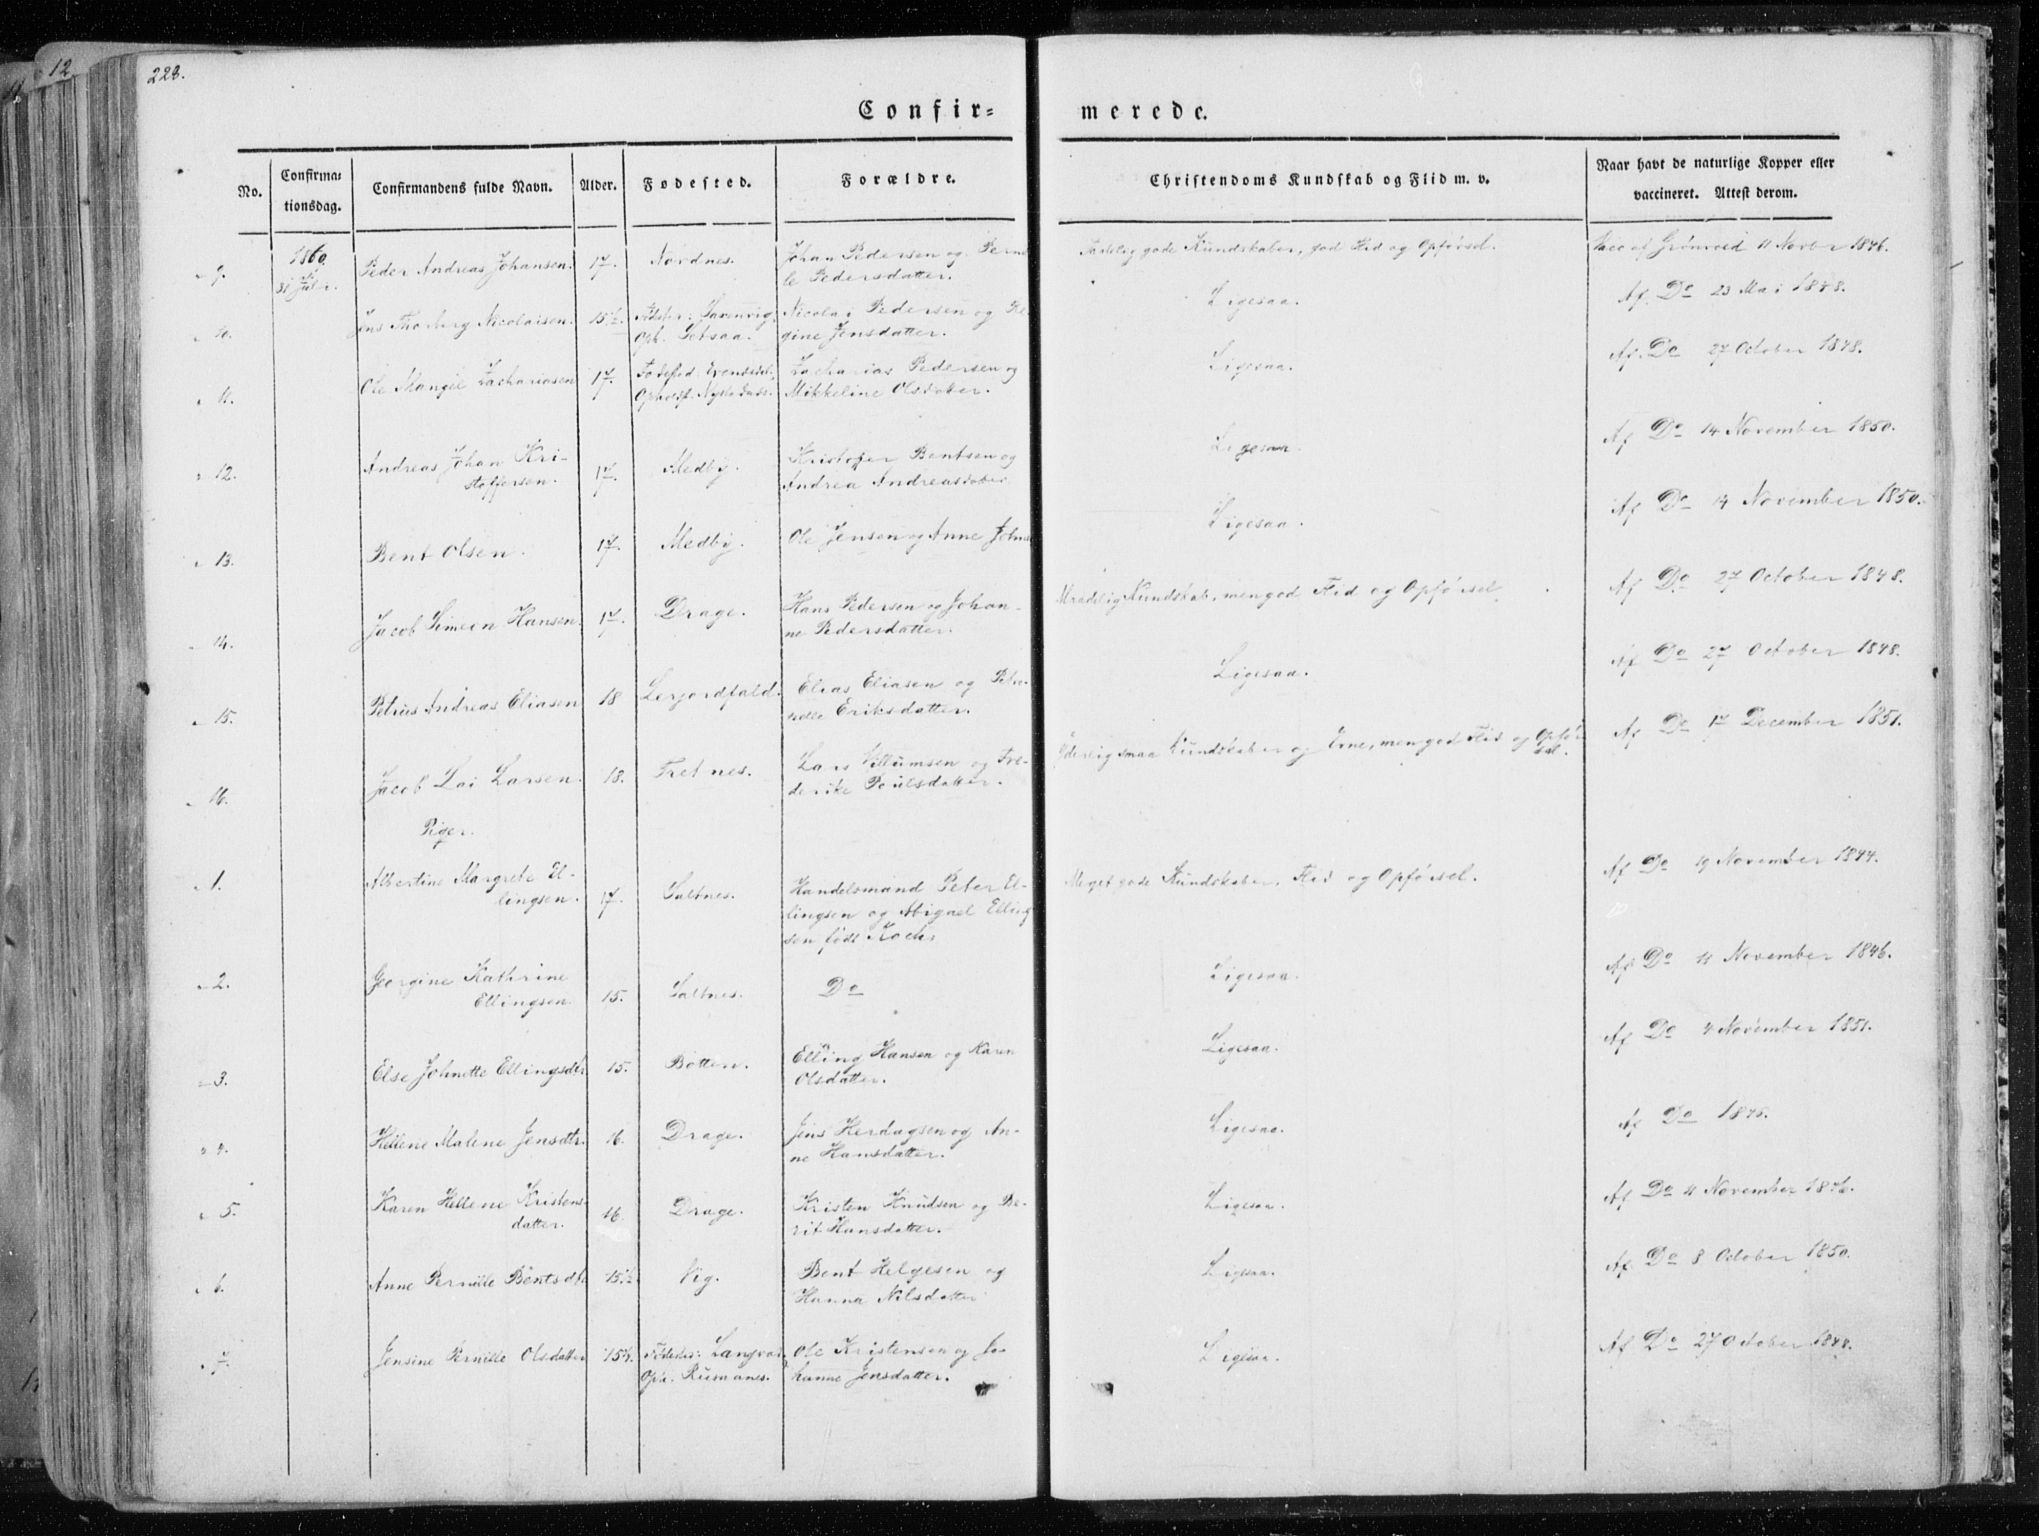 12
223.
Confir=
merede.
No.
Confirma=
tionsdag.
Confirmandens fulde Navn.
Alder.
Fødested.
Forældre.
Christendoms Kundskab og Flid m. v.
Naar havt de naturlige Kopper eller
vaccineret. Attest derom.
1860
31 Juli.
9.
Peder Andreas Johansen.
17.
Nordnes.
Johan Pedersen og Pernil-
le Pedersdatter.
gode Kundskaber, god Flid og Opførsel.
Vacc af Grønvold 11 Novbr 1846.
10.
Jens Nicolaisen.
15½.
Opt.
Nicolai Pedersen og Re-
gine Jensdatter.
Ligesaa.
Af Do 23 Mai 1848.
11.
Ole Zachariasen
17.
Fødested
Zacharias Pedersen og
Mikkeline Olsdatter.
Ligesaa.
Af Do 27 October 1848.
12.
Andreas Johan Kri-
stoffersen.
17.
Medby.
Kristoffer Bentsen og
Andrea Andreasdatter
Ligesaa
Af Do 14 November 1850.
13.
Bent Olsen.
17.
Medby.
Ole Jensen og Anne Johns
Ligesaa.
Af Do 14 November 1850.
14.
Jacob Simeon Hansen.
17.
Drage.
Hans Pedersen og Johan-
ne Pedersdatter.
Maadelig Kundskab, men god Flid og Opførsel
Af Do 27 October 1848.
15.
Petrus Andreas Eliasen
18
Lerjordfald.
Elias Eliasen og Petro-
nelle Eriksdatter.
Ligesaa.
Af Do 27 October 1848.
16.
Jacob Lai Larsen.
18.
Tretnes.
Lars Villumsen og Fre-
derike Poulsdatter.
Yderlig smaa Kundskaber og Evne, men god Flid og Opfør
sel.
Af Do 17 December 1851.
Piger.
1.
Albertine Margrete El-
lingsen.
17.
Saltnes.
Handelsmand Peter El-
lingsen og Abigael Elling
sen født Koch.
Meget gode Kundskaber, Flid og Opførsel.
Af Do 19 November 1844.
2.
Georgine Kathrine
Ellingsen
15.
Saltnes.
Do
Ligesaa.
Af Do 11 November 1846.
3.
Else Johnette Ellingsdtr
15.
Botten.
Elling Hansen og Karen
Olsdatter.
Ligesaa.
Af Do 4 November 1851.
4.
Hellene Malene Jensdtr.
16.
Drage.
Jens Herdagsen og An-
ne Hansdatter.
Ligesaa.
Af Do 1845.
5.
Karen Hellene Kristens-
datter.
16.
Drage.
Kristen Knudsen og Be-
rit Hansdatter.
Ligesaa.
Af Do 11 November 1846.
6.
Anne Pernille Bentsdtr
15½
Vig.
Bent Helgesen og
Hanna Nilsdatter
Ligesaa.
Af Do 8 October 1850.
7.
Jensine Pernille Olsdatter
15½.
Opt. Rusmanes.
Ole Kristensen og Jo-
hanne Jensdatter.
Ligesaa.
Af Do 27 October 1848.